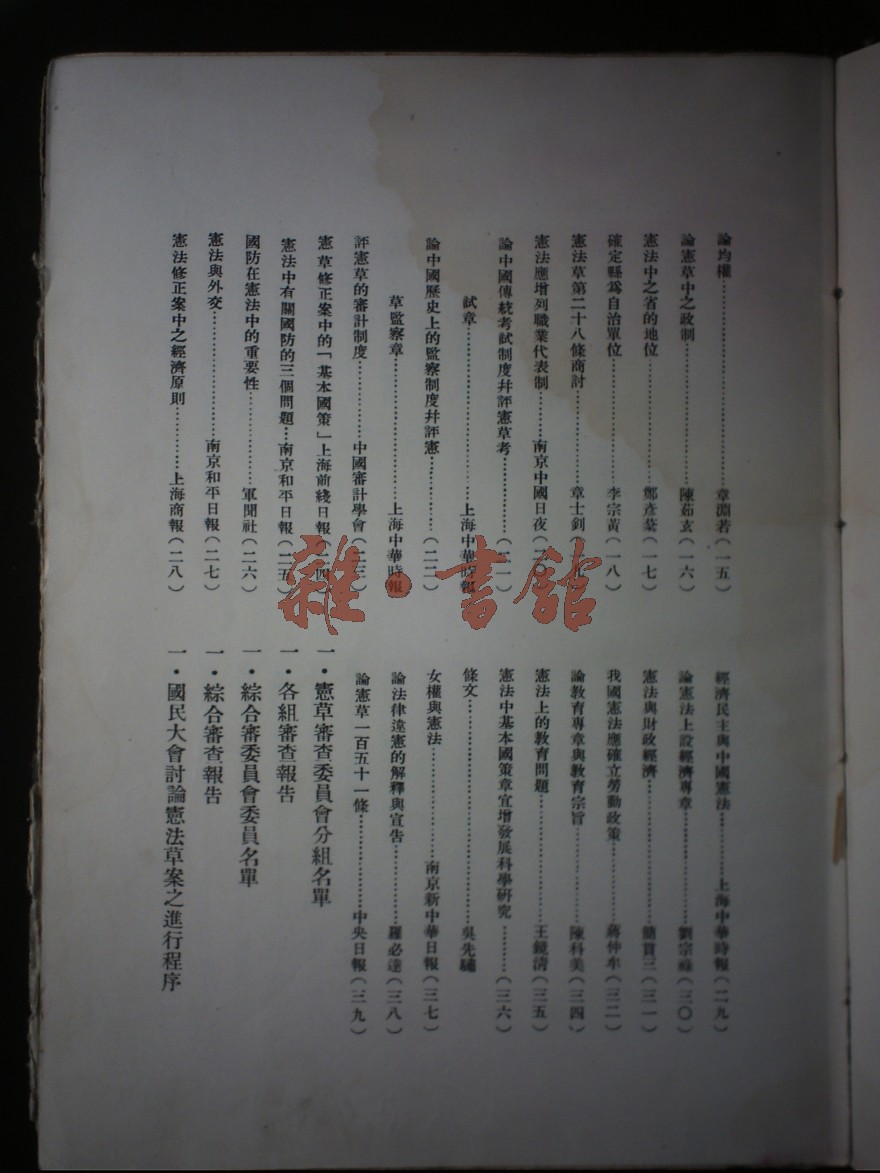 論均權⋯⋯⋯⋯⋯⋯章淵若(一五)
論憲草中之政制⋯⋯⋯⋯⋯⋯陳茹玄(一六)
憲法中之省的地位⋯⋯⋯⋯⋯⋯鄭彥棻(一七)
確定縣爲自治單位⋯⋯⋯⋯⋯⋯李宗黃(一八)
憲法草第二十八條商討⋯⋯⋯⋯⋯⋯章士釗(一九)
憲法應增列職業代表制⋯⋯⋯⋯南京中國日夜(二〇)
論中國傳統考試制度幷評憲草考⋯⋯⋯⋯(二一)
試章⋯⋯⋯⋯⋯⋯上海中華時報
論中國歷史上的監察制度幷評憲⋯⋯⋯⋯(二二)
草監察章⋯⋯⋯⋯⋯⋯上海中華時報
評憲草的審計制度⋯⋯⋯⋯中國審計學會(二三)
憲草修正案中的「基本國策」上海前綫日報(二四)
憲法中有關國防的三個問題⋯南京和平日報(二五)
國防在憲法中的重要性⋯⋯⋯⋯⋯⋯軍聞社(二六)
憲法與外交⋯⋯⋯⋯⋯⋯南京和平日報(二七)
憲法修正案中之經濟原則⋯⋯⋯⋯上海商報(二八)
經濟民主與中國憲法⋯⋯⋯⋯上海中華時報(二九)
論憲法上設經濟專章⋯⋯⋯⋯⋯⋯劉宗(三〇)
憲法與財政經濟⋯⋯⋯⋯⋯⋯簡貫三(三一)
我國憲法應確立勞動政策⋯⋯⋯⋯⋯⋯蔣仲牟(三二)
論教育專章與教育宗旨⋯⋯⋯⋯⋯⋯陳科美(三四)
憲法上的教育問題⋯⋯⋯⋯⋯⋯王鏡清(三五)
憲法中基本國策章宜增發展科學硏究⋯⋯(三六)
條文⋯⋯⋯⋯⋯⋯吳先驌
女權與憲法⋯⋯⋯⋯⋯⋯南京新中華日報(三七)
論法律違憲的解釋與宣告⋯⋯⋯⋯⋯⋯羅必達(三八)
論憲草一百五十一條⋯⋯⋯⋯⋯⋯中央日報(三九)
一・憲草審查委員會分組名單
一・各組審查報告
一・綜合審委員會委員名單
一・綜合審查報告
一・國民大會討論憲法草案之進行程序
雜・書館